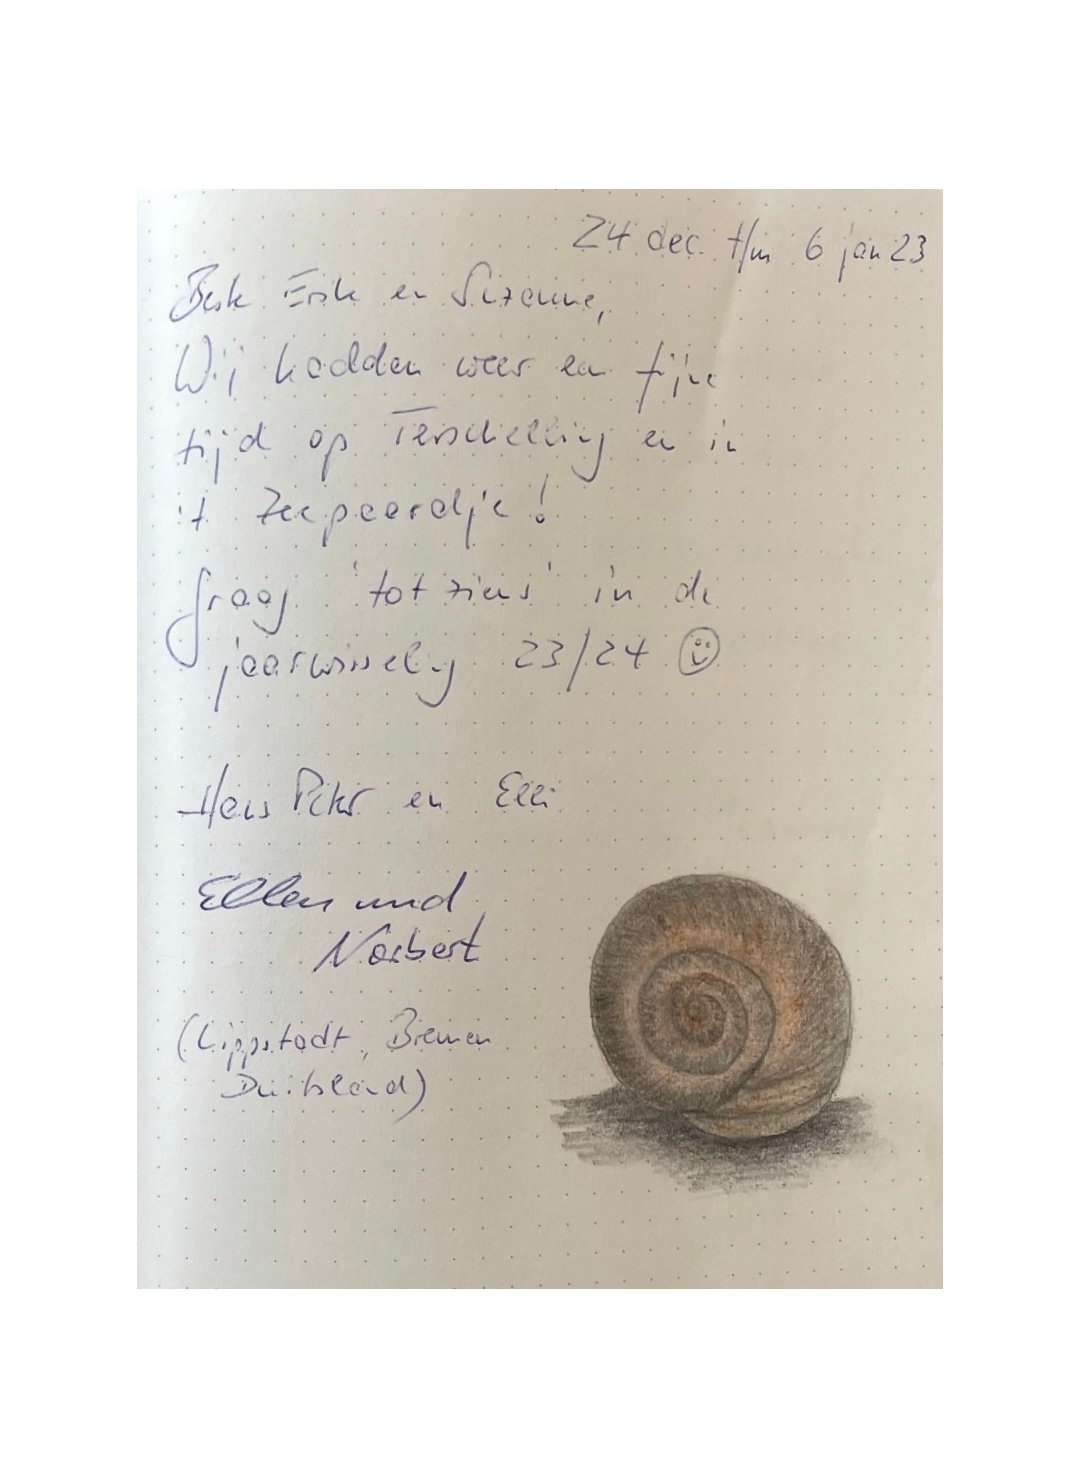 24 dec. t/m 6 jan 23
Beste Erik en Suzanne,
Wij hadden weer een fijne
tijd op Terschelling en in
't Zeepaardje!
Graag 'tot ziens' in de
jaarwisseling 23/24
Hans Peter en Elli
Ellen und
Norbert
(Lippstadt, Bremen
Duitsland)